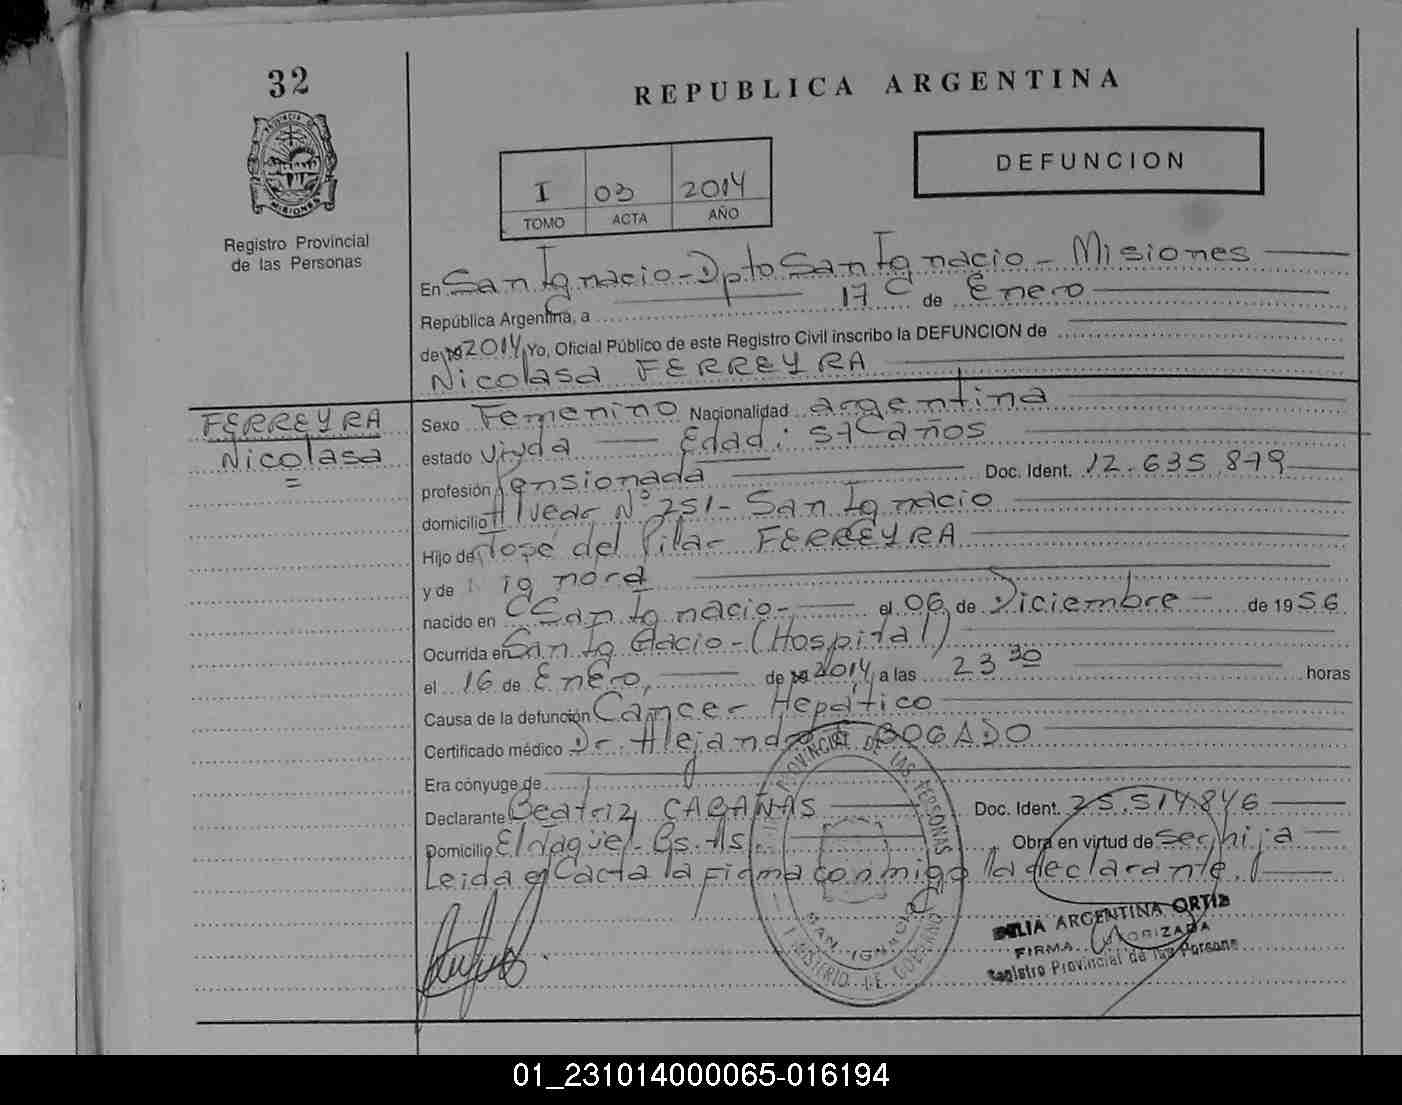 32
REPUBLICA ARGENTINA
PROVINCIA DE
MISIONES
Registro Provincial
de las Personas
DEFUNCION
I 03 2014
TOMO ACTA AÑO
En San Ignacio - Dpto San Ignacio - Misiones
República Argentina, a 17 de Enero
de 19 2014 Yo, Oficial Público de este Registro Civil inscribo la DEFUNCION de
Nicolasa FERREYRA
FERREYRA
Nicolasa
Sexo Femenino Nacionalidad argentina
estado Viuda Edad: 57 años
profesión Pensionada Doc. Ident. 12.635.879
domicilio Alvear Nº 251 - San Ignacio
Hijo de José del Pilar FERREYRA
y de ignora
nacido en San Ignacio - el 06 de Diciembre - de 1956
Ocurrida en San Ig acio - (Hospital)
el 16 de Enero, de 19 2014 a las 23 30 horas
Causa de la defunción Cancer Hepático
Certificado médico Dr. Alejandro BOGADO
Era cónyuge de
Declarante Beatriz CABAÑAS Doc. Ident. 25.514.846
Domicilio El - Bs. As. Obra en virtud de ser hija
Leida el acta la firma conmigo la declarante.
PROVINCIAL DE LAS PERSONAS
SAN IGNACIO
MINISTERIO DE GOBIERNO
ARGENTINA ORTIZ
FIRMA AUTORIZADA
Registro Provincial de las Personas
01_231014000065-016194